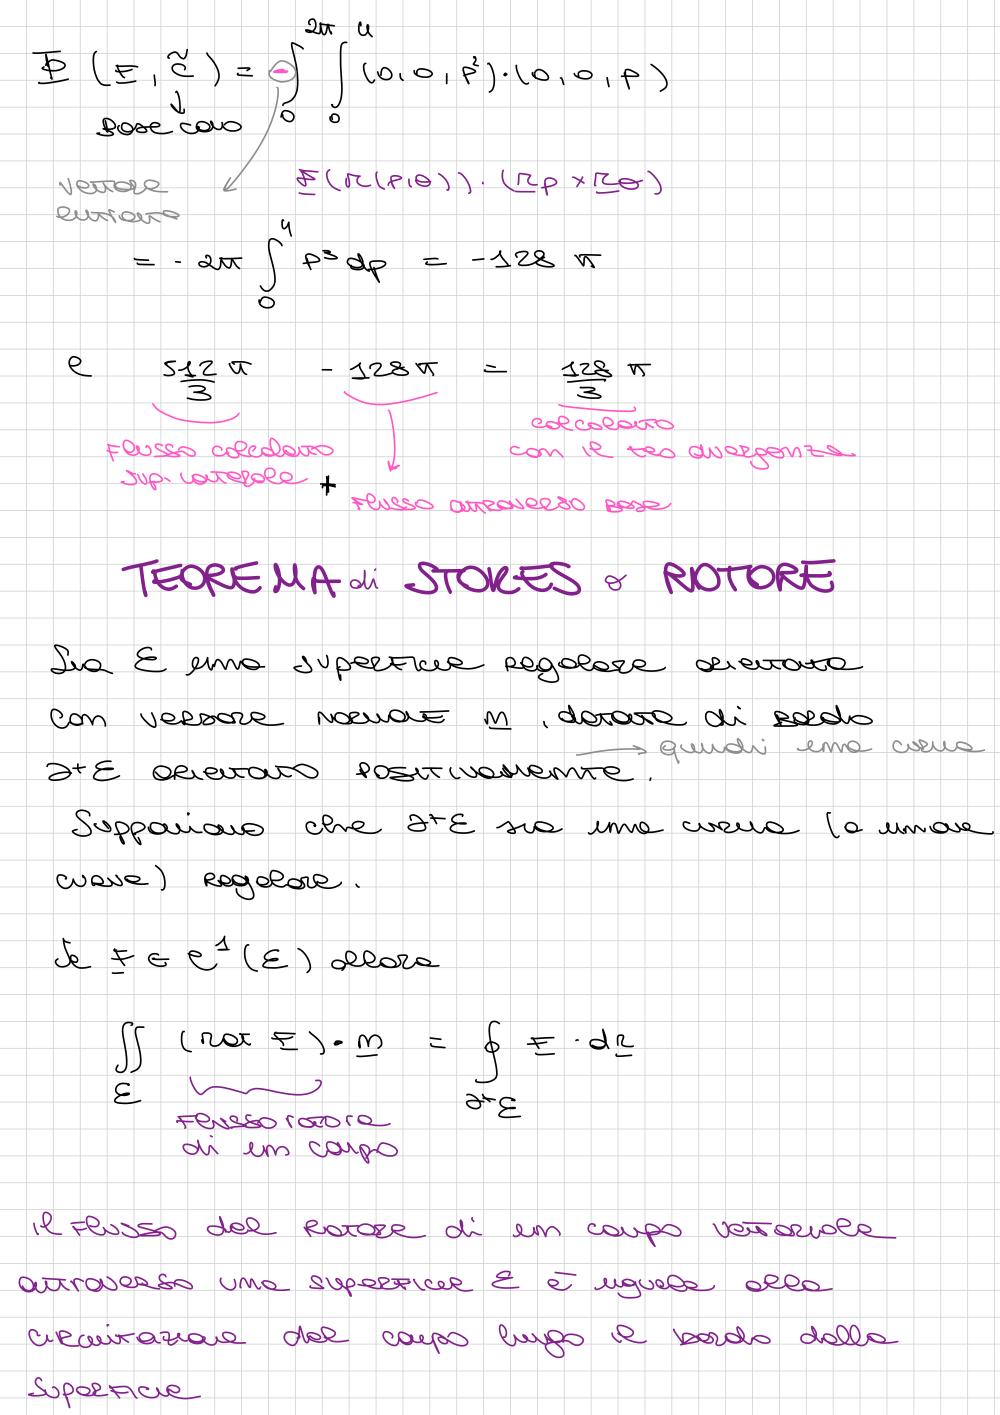 Φ (F, C̃) = - ∫₀^2π ∫₀^4 (0, 0, ρ²) · (0, 0, ρ)
Base cono
vettore
entrante
F(r(ρ,θ)) · (rρ × rθ)
= - 2π ∫₀^4 ρ³ dρ = -128 π
e 512/3 π - 128 π = 128/3 π
Flusso calcolato
sup. laterale +
Flusso attraverso base
calcolato
con il teo divergenza
TEOREMA di STOKES o ROTORE
Sia Σ una superficie regolare orientata
con versore normale n, dotata di bordo
→ quindi una curva
∂⁺Σ orientato positivamente.
Supponiamo che ∂⁺Σ sia una curva (o unione
curve) regolare.
Se F ∈ C¹(Σ) allora
∬_Σ (rot F) · n = ∮_∂⁺Σ F · dr
Flusso rotore
di un campo
il flusso del rotore di un campo vettoriale
attraverso una superficie Σ è uguale alla
circuitazione del campo lungo il bordo della
superficie